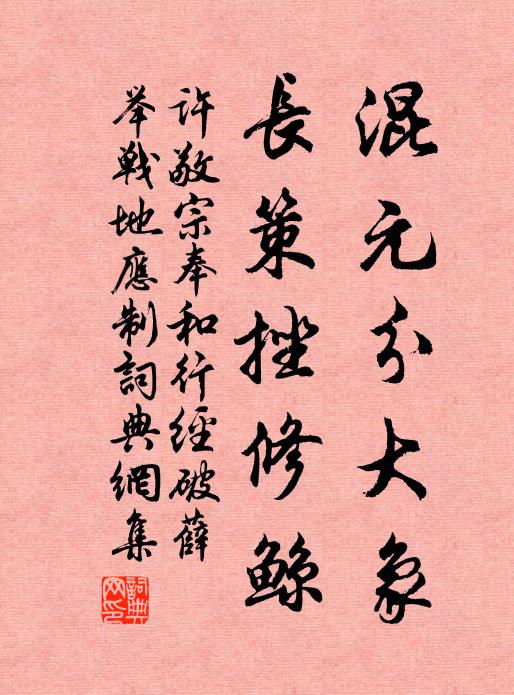 混元分大象
長策挫修鯨
許敬宗奉和行經破薛
举戰地應制詞典網集
詞典網印